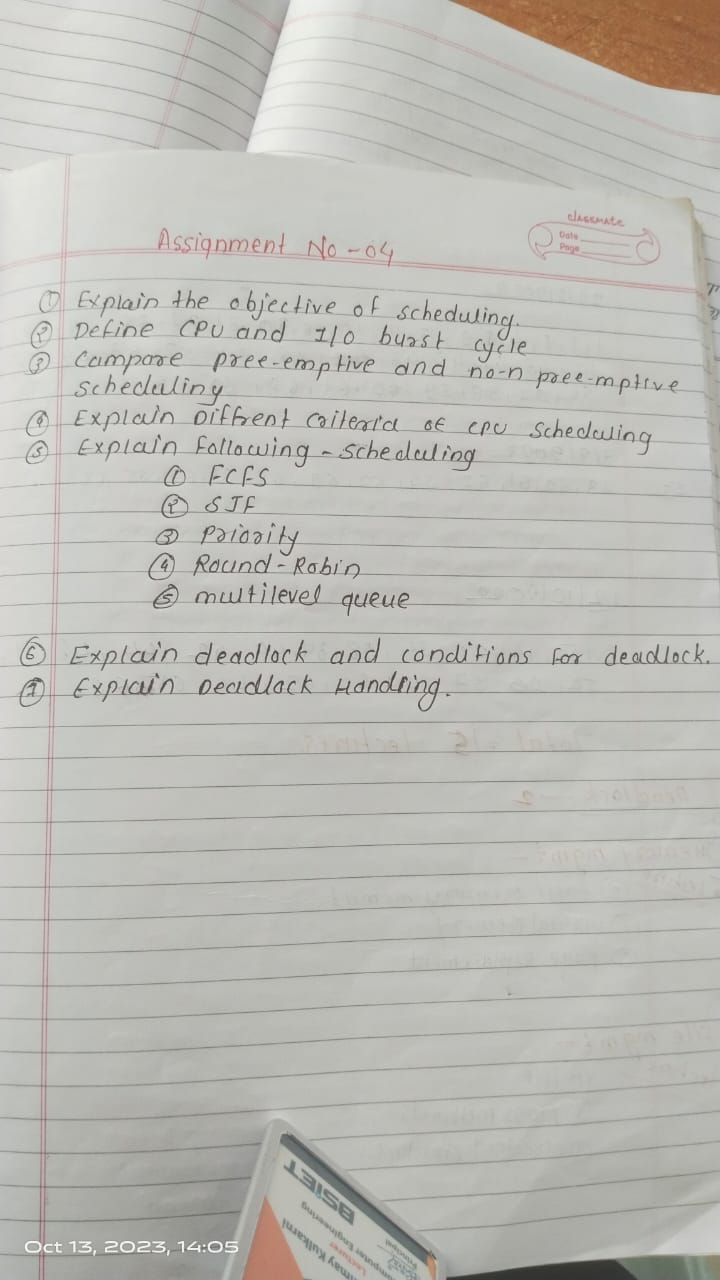 classmate
Date
Page
Assignment No - 04
① Explain the objective of scheduling.
② Define CPU and I/O burst cycle
③ Campare pree-emptive and no-n pree-mptive
scheduling
④ Explain Diffrent criteria of CPU scheduling
⑤ Explain following - scheduling
① FCFS
② SJF
③ Priority
④ Round - Robin
⑤ multilevel queue
⑥ Explain deadlock and conditions for deadlock.
⑦ Explain Deadlock Handling.
BSIET
Computer Engineering
Lecturer
Principal
Kulkarni
Oct 13, 2023, 14:05